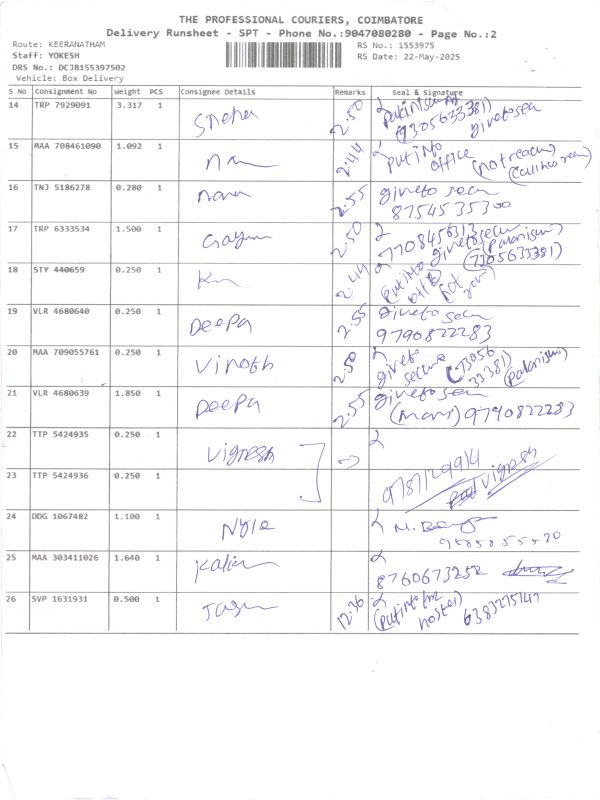 THE PROFESSIONAL COURIERS, COIMBATORE
Delivery Runsheet - SPT - Phone No.:9047080280 - Page No.:2
Route: KEERANATHAM RS No.: 1553975
Staff: YOKESH RS Date: 22-May-2025
DRS No.: DCJB155397502
Vehicle: Box Delivery
S No Consignment No Weight PCS Consignee Details Remarks Seal & Signature
14 TRP 7929091 3.317 1 Sneha 2.50
(7305633381)
15 MAA 708461090 1.092 1 2.44 put into
office (not reach)
16 TNJ 5186278 0.280 1 2.55 giveto secu
8754535300
17 TRP 6333534 1.500 1 2.50 7708456313
giveto secu (palanisam)
(7305633381)
18 STY 440659 0.250 1 2.44 (put into
19 VLR 4680640 0.250 1 Deepa 2.55 giveto secu
9790822283
20 MAA 709055761 0.250 1 Vinoth 2.50 giveto
secure (73056
33381) (palanisam)
21 VLR 4680639 1.850 1 Deepa 2.55 giveto secu
(mani) 9790822283
22 TTP 5424935 0.250 1 Vignesh
23 TTP 5424936 0.250 1 9787129914
Vignesh
24 DDG 1067482 1.100 1
25 MAA 303411026 1.640 1 8760673252
26 SVP 1631931 0.500 1 12.36
hostel) 6383275147